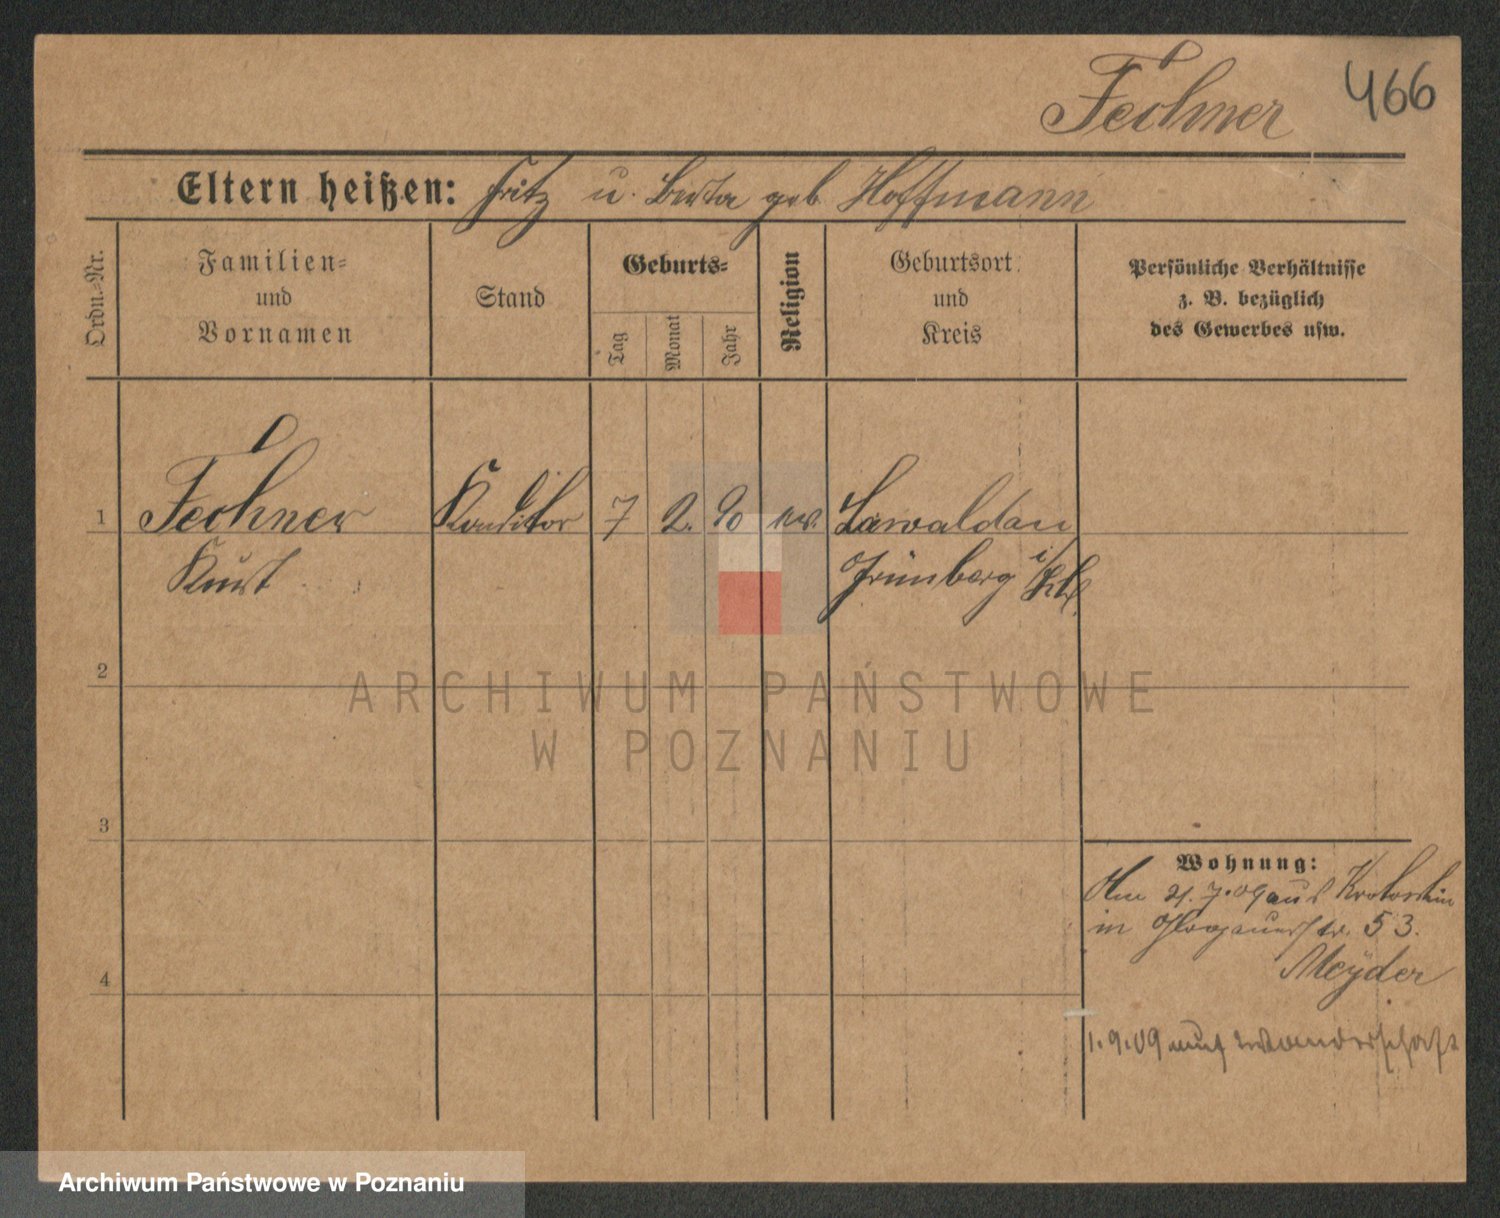 Fechner
466
Eltern heißen: Fritz u. Berta geb. Hoffmann
Ordn.-Nr.
Familien-
und
Vornamen
Stand
Geburts-
Tag
Monat
Jahr
Religion
Geburtsort
und
Kreis
Persönliche Verhältnisse
z. B. bezüglich
des Gewerbes usw.
1 Fechner Konditor 7 2. 90 ev. Lawaldau
Kurt Grünberg i/Schl.
2
3
4
Wohnung:
Am 21.7.09 aus Krotoschin
in Glogauerstr. 53.
Meyder
1.9.09 auf Wanderschaft
ARCHIWUM PAŃSTWOWE
W POZNANIU
Archiwum Państwowe w Poznaniu